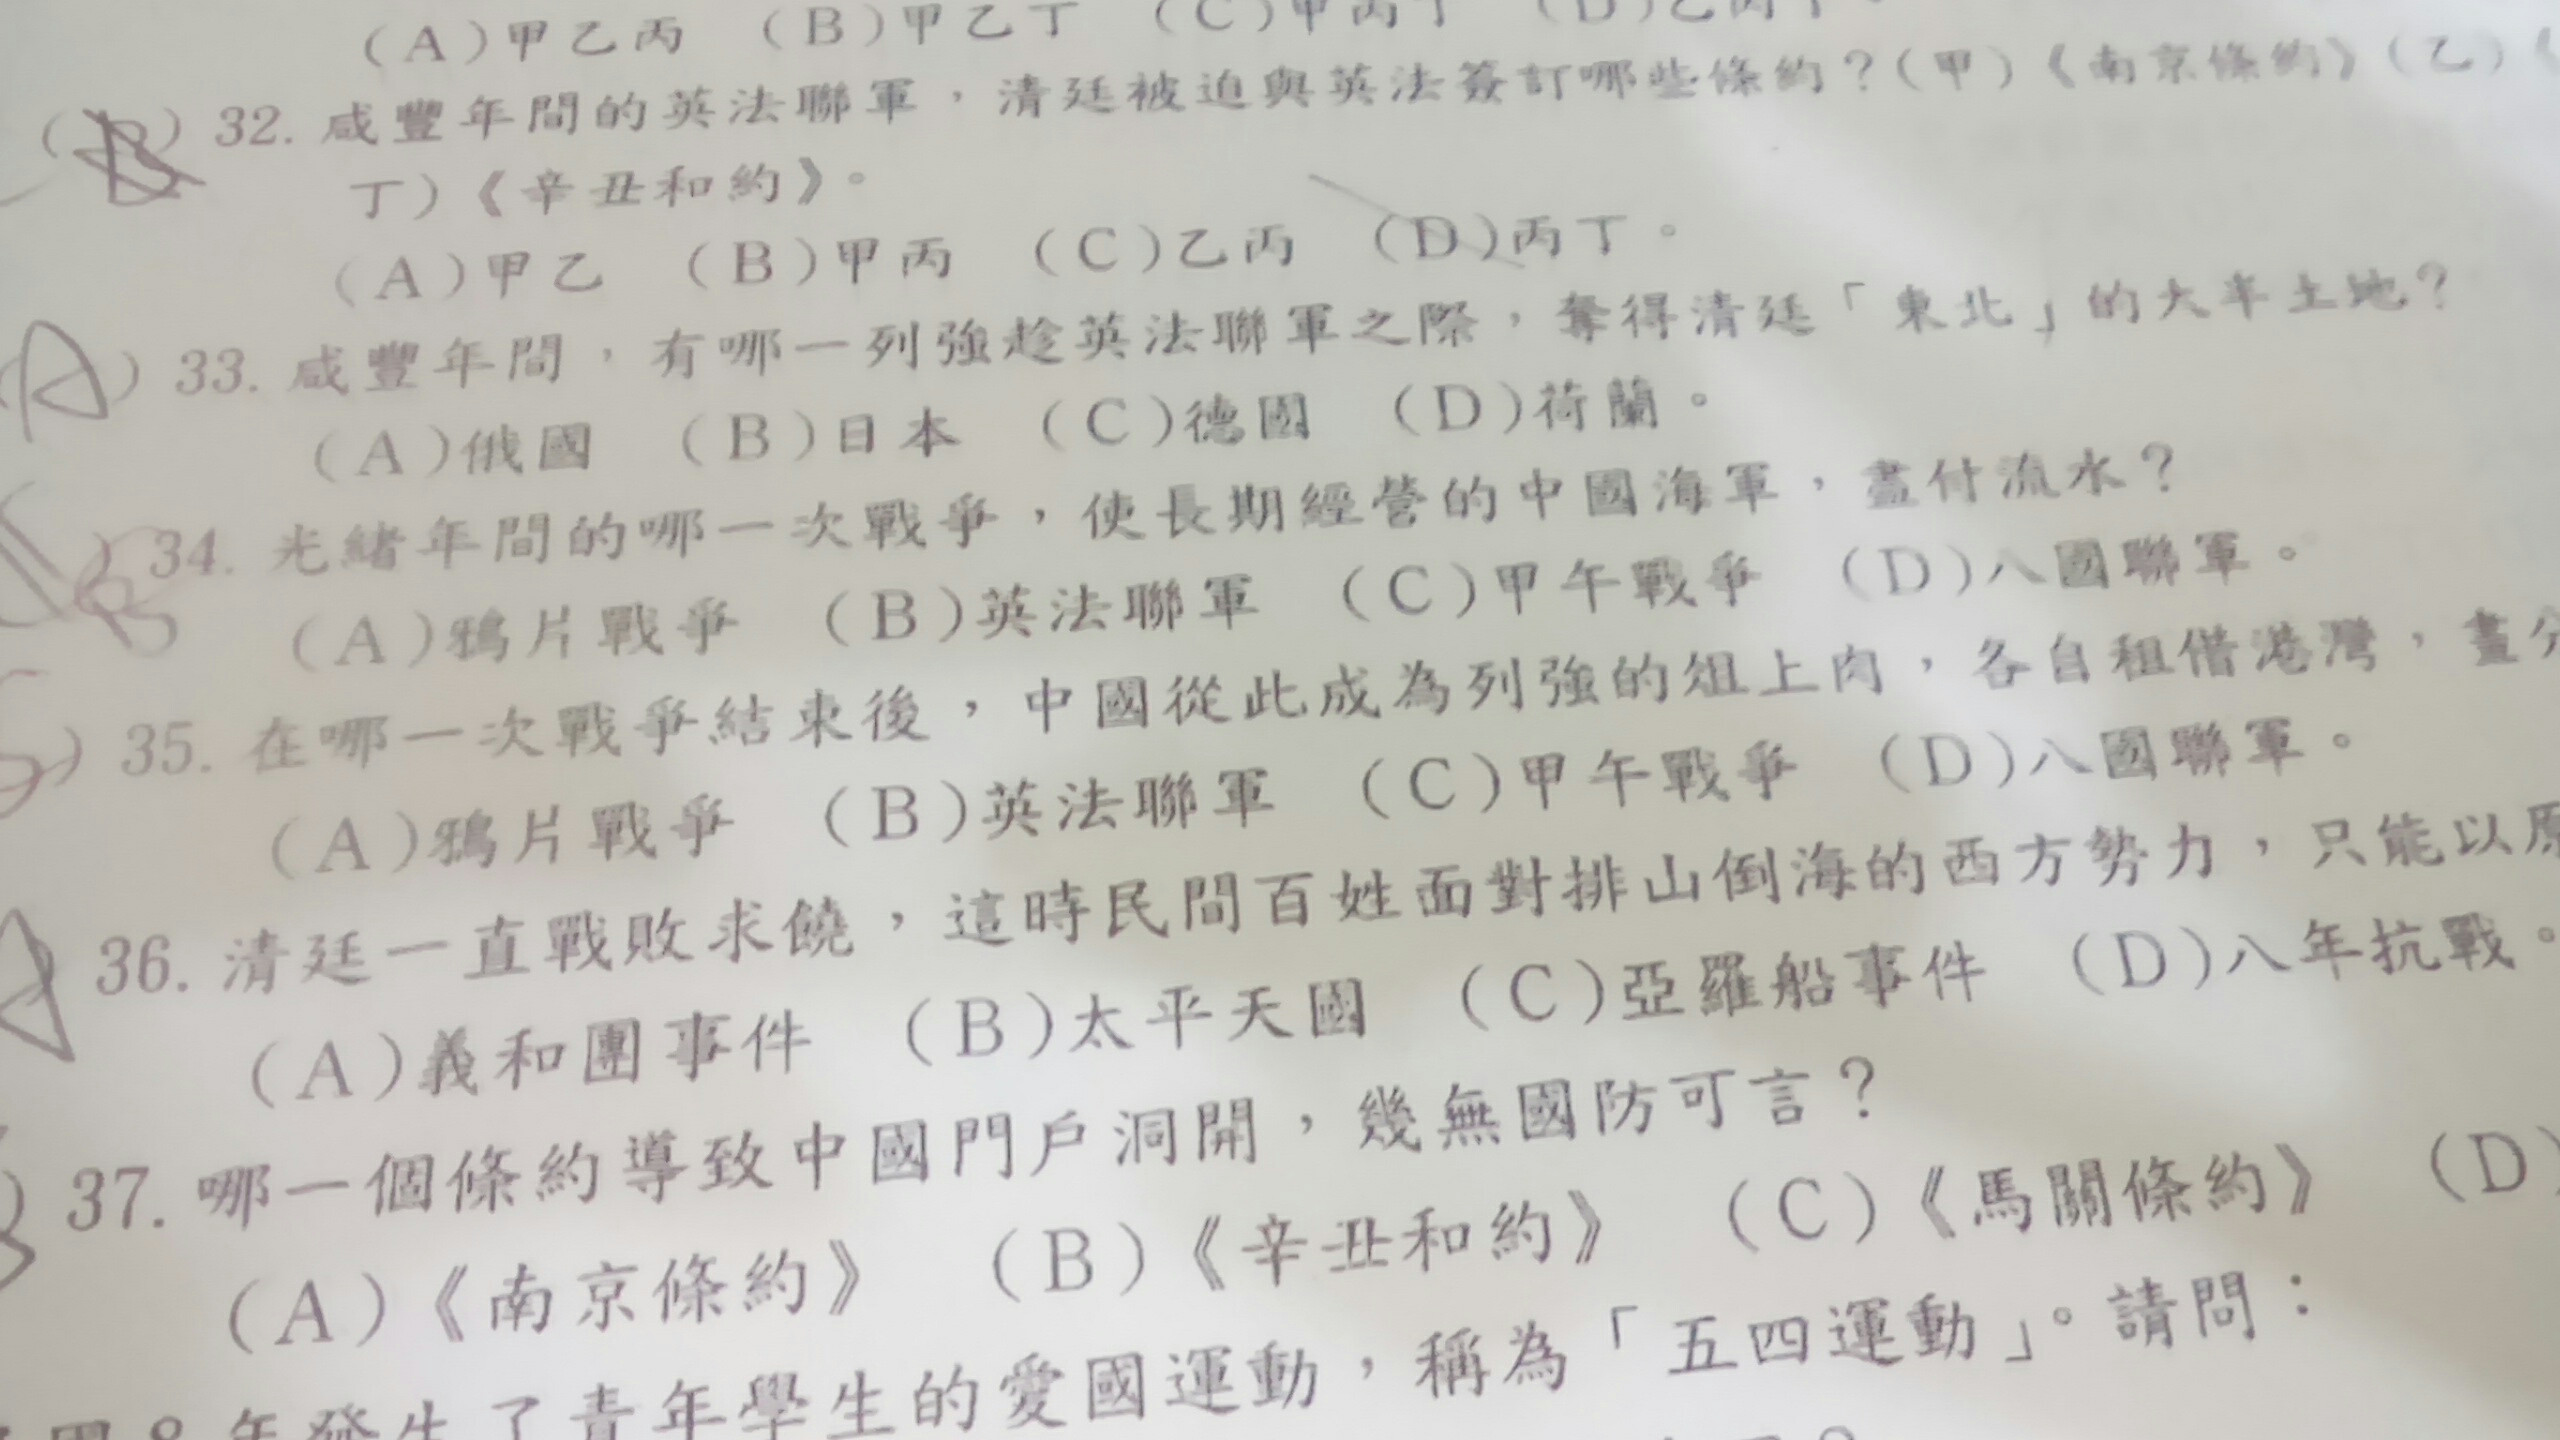 (A)甲乙丙 (B)甲乙丁 (C)甲丙丁 (D)乙丙丁。
(B) 32. 咸豐年間的英法聯軍，清廷被迫與英法簽訂哪些條約？(甲)《南京條約》(乙)《
丁)《辛丑和約》。
(A)甲乙 (B)甲丙 (C)乙丙 (D)丙丁。
(A) 33. 咸豐年間，有哪一列強趁英法聯軍之際，奪得清廷「東北」的大半土地？
(A)俄國 (B)日本 (C)德國 (D)荷蘭。
) 34. 光緒年間的哪一次戰爭，使長期經營的中國海軍，盡付流水？
(A)鴉片戰爭 (B)英法聯軍 (C)甲午戰爭 (D)八國聯軍。
) 35. 在哪一次戰爭結束後，中國從此成為列強的俎上肉，各自租借港灣，畫分
(A)鴉片戰爭 (B)英法聯軍 (C)甲午戰爭 (D)八國聯軍。
A 36. 清廷一直戰敗求饒，這時民間百姓面對排山倒海的西方勢力，只能以原
(A)義和團事件 (B)太平天國 (C)亞羅船事件 (D)八年抗戰。
) 37. 哪一個條約導致中國門戶洞開，幾無國防可言？
(A)《南京條約》 (B)《辛丑和約》 (C)《馬關條約》 (D)
8年發生了青年學生的愛國運動，稱為「五四運動」。請問：